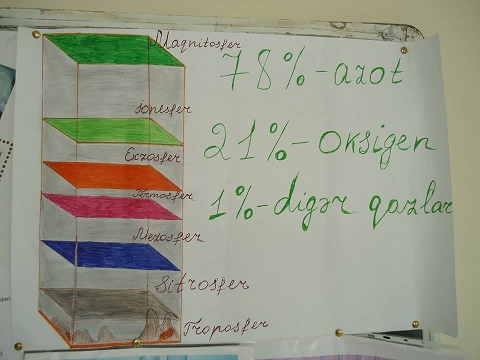 Maqnitosfer
78%-azot
İonosfer
21%-Oksigen
Ekzosfer
1%-digər qazlar
Termosfer
Mezosfer
Sitrosfer
Troposfer